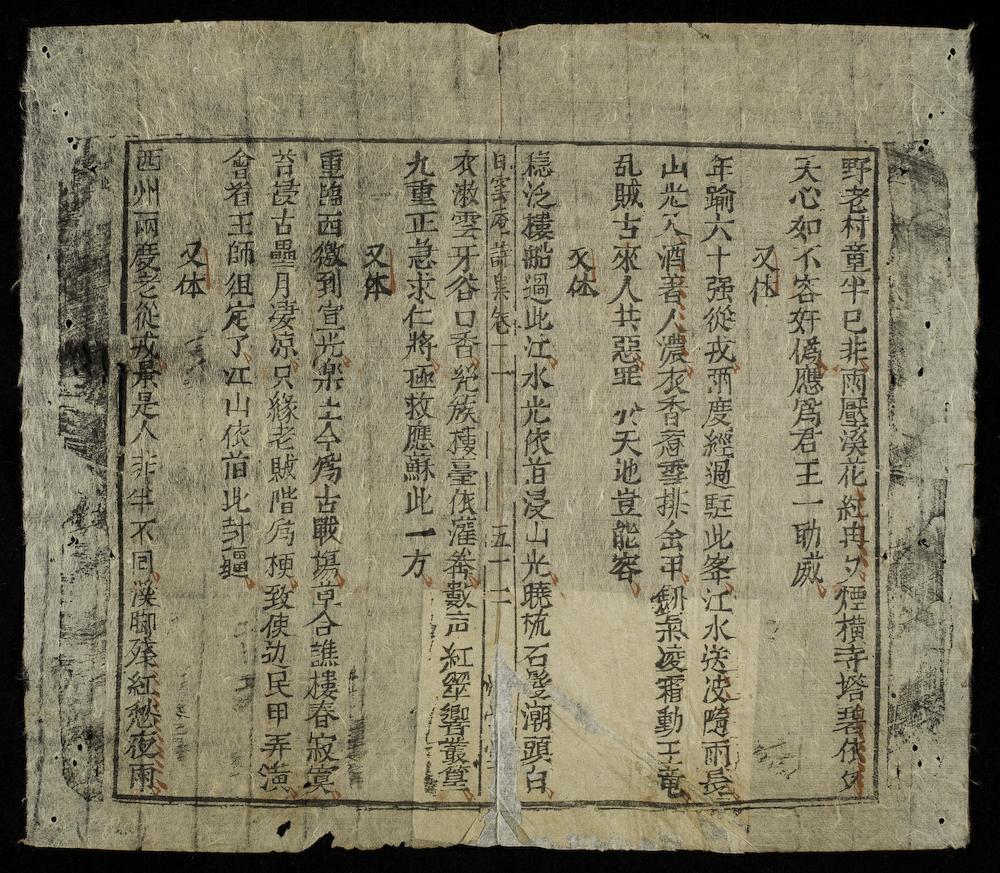 野老村童半已非雨壓溪花紅冉冉煙橫寺塔碧依依
天心如不容奸僞應爲君王一助威
又体
年踰六十强從戎兩度經過駐此峯江水送波隨雨長
山光入酒着人濃衣香惹雪排金甲劒氣凌霜動玉竜
乱賊古來人共惡罡 天地豈能容
又体
穏泛樓船過此江水光依旧浸山光曉梳石髮潮頭白
白雲庵詩集卷二 五十三
衣漱雲牙谷口香 族樓臺依灌 數声紅翠響叢篁
九重正急求仁將 極救應蘇此一方
又体
重臨西徼到宣光樂土今爲古戰塲草合譙樓春寂寞
苔侵古壘月凄凉只緣老賊階爲梗致使边民甲弄潢
會看王師徂定了江山依旧此封疆
又体
西州兩度老從戎景是人非半不同溪脚殘紅愁夜雨